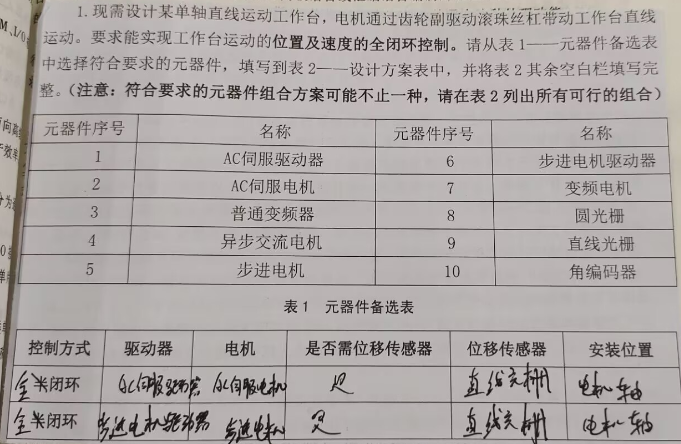 1. 现需设计某单轴直线运动工作台，电机通过齿轮副驱动滚珠丝杠带动工作台直线
运动。要求能实现工作台运动的位置及速度的全闭环控制。请从表1——元器件备选表
中选择符合要求的元器件，填写到表2——设计方案表中，并将表2其余空白栏填写完
整。（注意：符合要求的元器件组合方案可能不止一种，请在表2列出所有可行的组合）
元器件序号 名称 元器件序号 名称
1 AC伺服驱动器 6 步进电机驱动器
2 AC伺服电机 7 变频电机
3 普通变频器 8 圆光栅
4 异步交流电机 9 直线光栅
5 步进电机 10 角编码器
表1 元器件备选表
控制方式 驱动器 电机 是否需位移传感器 位移传感器 安装位置
全闭环 AC伺服驱动器 AC伺服电机 是 直线光栅 电机轴
全闭环 步进电机驱动器 步进电机 是 直线光栅 电机轴